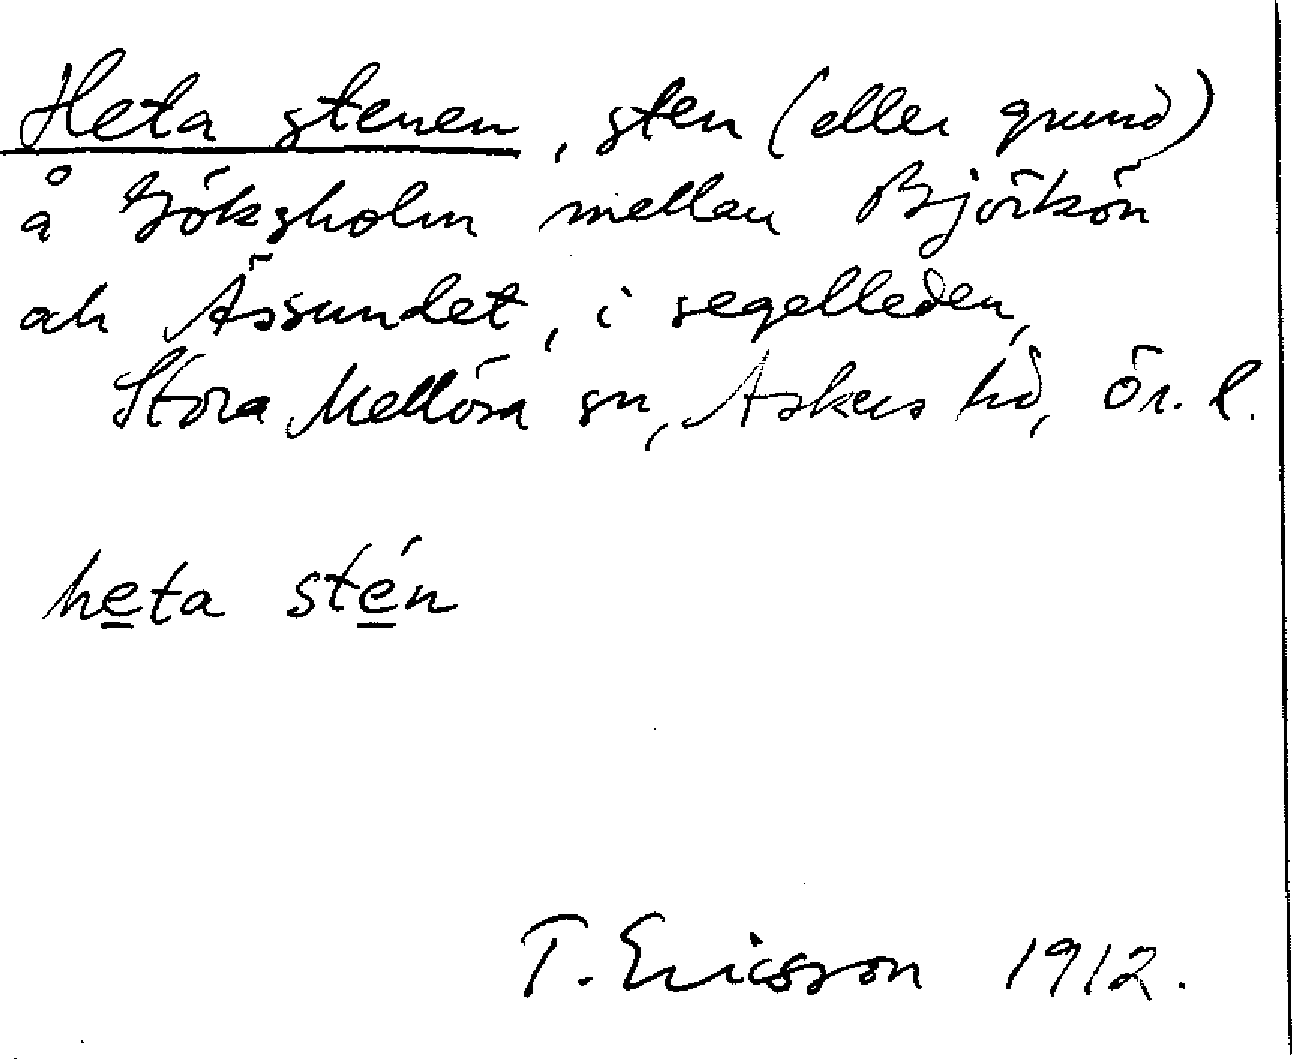 Heta stenen, sten (eller grund)
å Göksholm mellan Björkön
och Ässundet, i segelleden,
Stora Mellösa sn, Askers hd, Ör. l.
heta stén
T. Ericsson 1912.